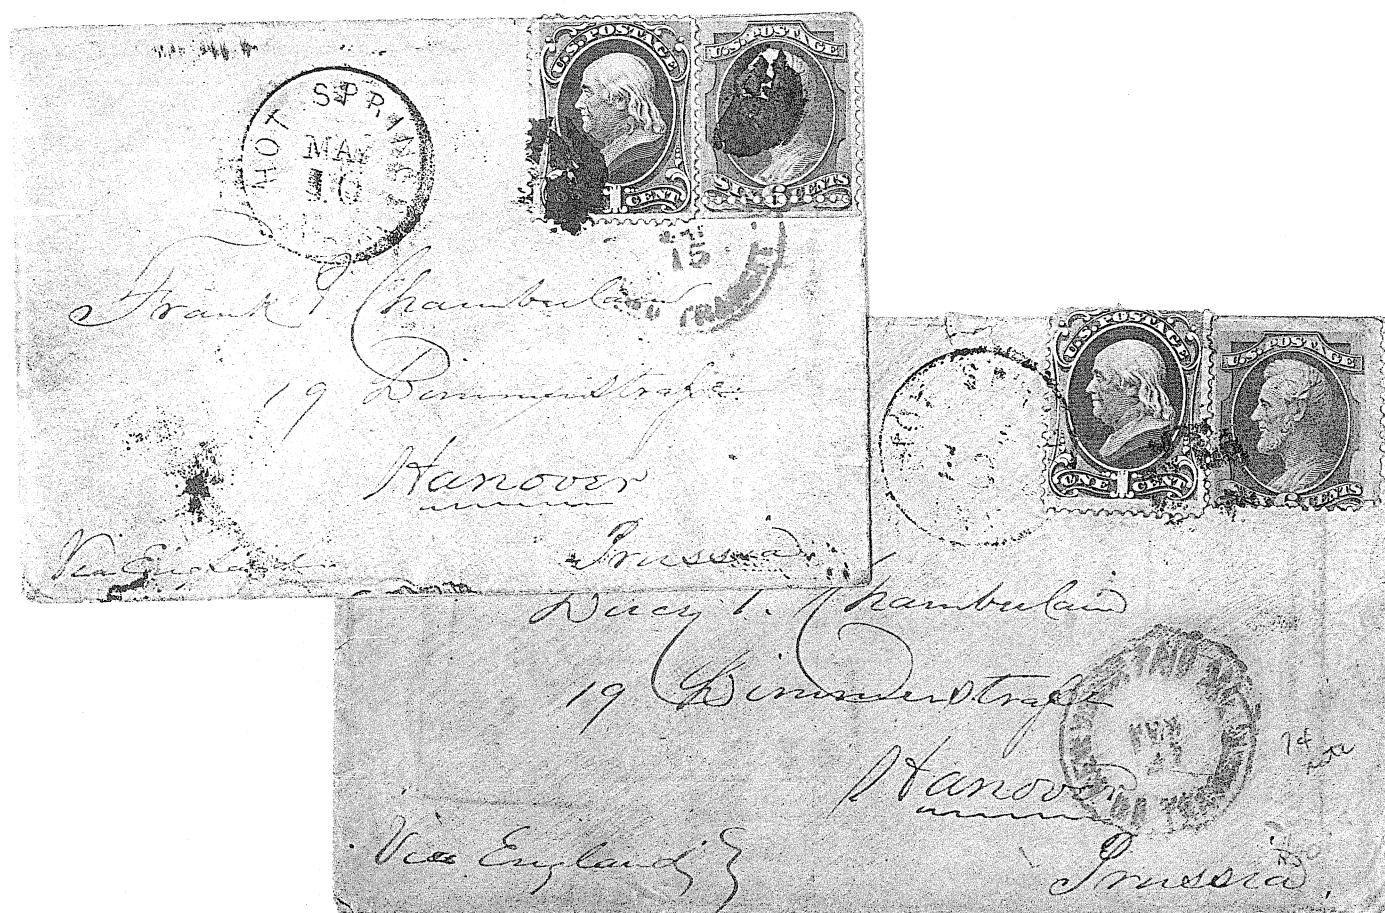 HOT SPRINGS
MAY
10
U.S. POSTAGE
1 CENT
U.S. POSTAGE
SIX 6 CENTS
15
TRANSIT
Frank T. Chamberlain
19 Dimmerstrafse
Hanover
Prussia
Via England
HOT SPR
U.S. POSTAGE
ONE 1 CENT
U.S. POSTAGE
SIX 6 CENTS
T. Chamberlain
19 Dimmerstrafse
Hanover
Prussia.
Via England
7¢
rate